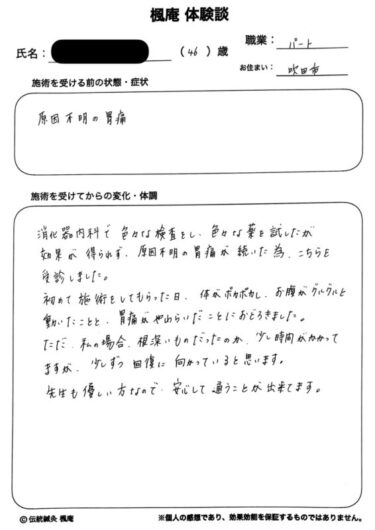 楓庵 体験談
氏名： （46）歳
職業： パート
お住まい： 吹田市
施術を受ける前の状態・症状
原因不明の胃痛
施術を受けてからの変化・体調
消化器内科で色々な検査をし、色々な薬を試したが
効果が得られず、原因不明の胃痛が続いた為、こちらを
受診しました。
初めて施術をしてもらった日、体がポカポカし、お腹がグルグルと
動いたことと、胃痛がやわらいだことにおどろきました。
ただ、私の場合、根深いものだったのか、少し時間がかかって
ますが、少しずつ回復に向かっていると思います。
先生も優しい方なので、安心して通うことが出来てます。
© 伝統鍼灸 楓庵
※個人の感想であり、効果効能を保証するものではありません。